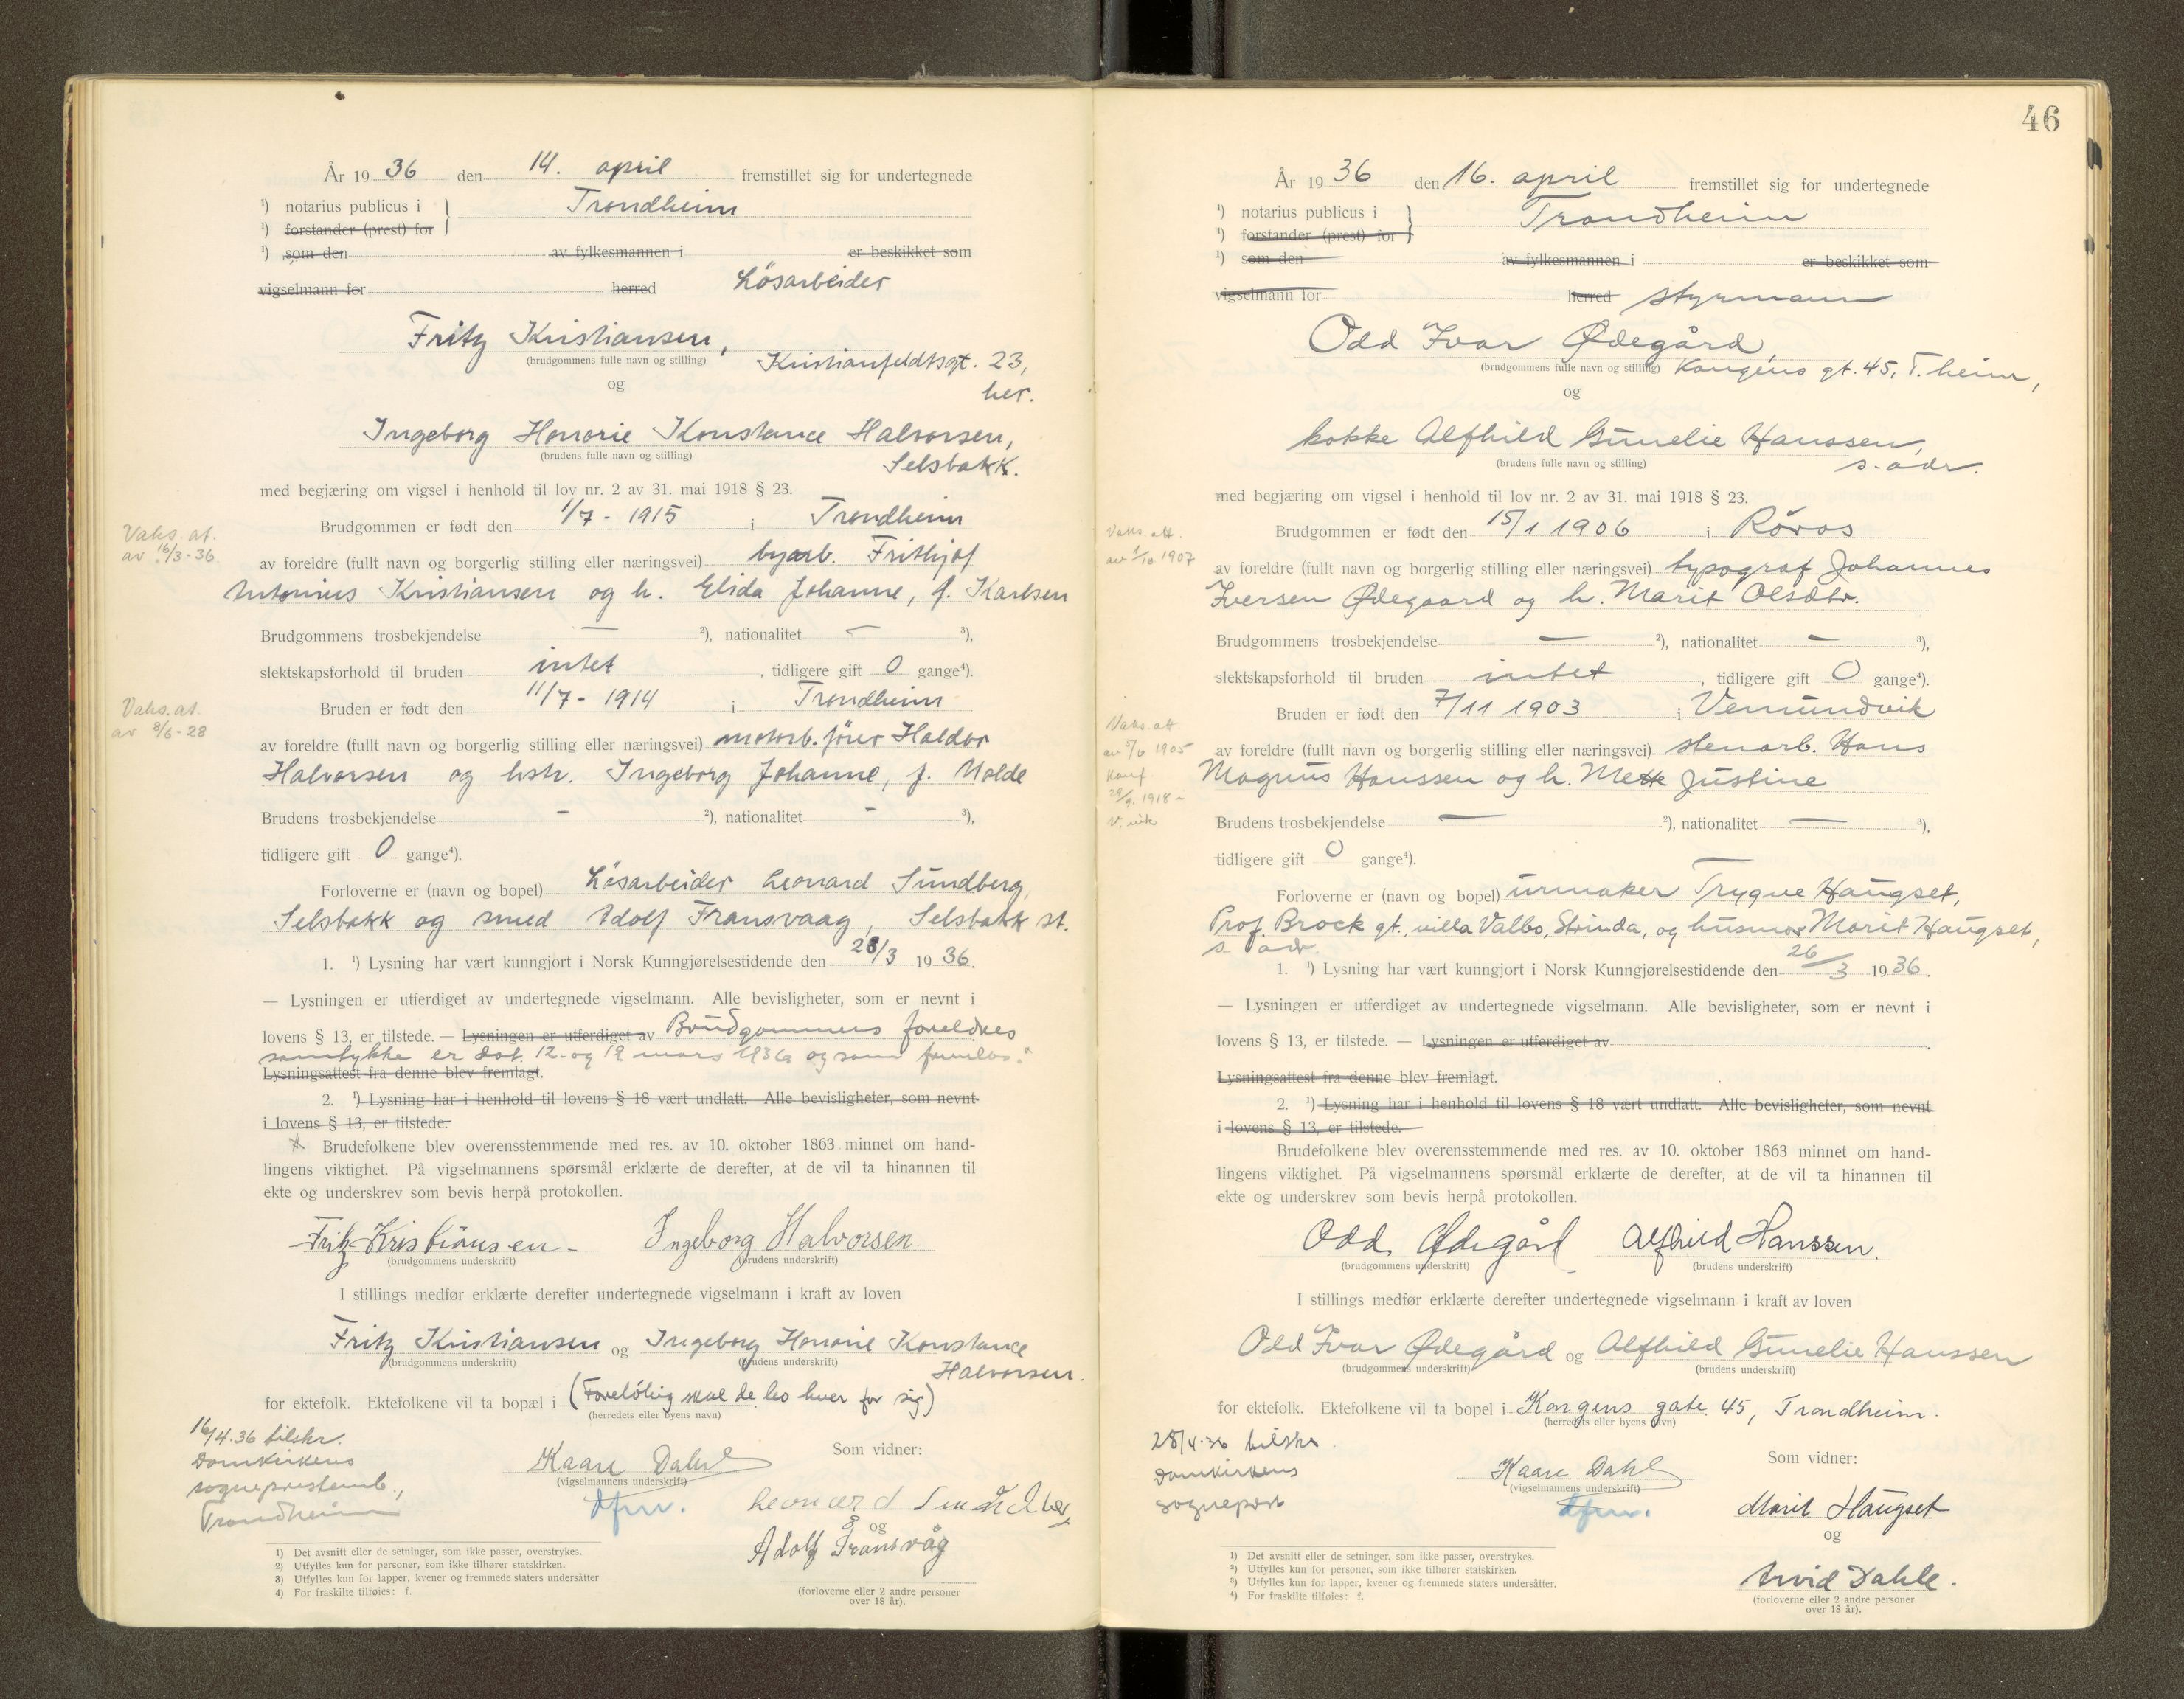 År 1936 den 14. april fremstillet sig for undertegnede
¹) notarius publicus i } Trondheim
¹) forstander (prest) for
¹) som den av fylkesmannen i er beskikket som
vigselmann for herred Lösarbeider
Fritz Kristiansen,
(brudgommens fulle navn og stilling) Kristianfeldtsgt. 23,
og her.
Ingeborg Honorie Konstance Halvorsen,
(brudens fulle navn og stilling) Selsbakk.
med begjæring om vigsel i henhold til lov nr. 2 av 31. mai 1918 § 23.
Brudgommen er født den 1/7 - 1915 i Trondheim
Vaks. at.
av 16/3-36.
av foreldre (fullt navn og borgerlig stilling eller næringsvei) byarb. Frithjof
Antonius Kristiansen og h. Elida Johanne, f. Karlsen
Brudgommens trosbekjendelse — ²), nationalitet — ³),
slektskapsforhold til bruden intet, tidligere gift 0 gange⁴).
Bruden er født den 11/7 - 1914 i Trondheim
Vaks. at.
av 8/6-28
av foreldre (fullt navn og borgerlig stilling eller næringsvei) motorb. fører Haldor
Halvorsen og hstr. Ingeborg Johanne, f. Molde
Brudens trosbekjendelse - ²), nationalitet - ³),
tidligere gift 0 gange⁴).
Forloverne er (navn og bopel) Lösarbeider Leonard Sundberg,
Selsbakk og smed Adolf Fransvaag, Selsbakk st.
1. ¹) Lysning har vært kunngjort i Norsk Kunngjørelsestidende den 28/3 1936.
— Lysningen er utferdiget av undertegnede vigselmann. Alle bevisligheter, som er nevnt i
lovens § 13, er tilstede. — Lysningen er utferdiget av Brudgommens foreldres
samtykke er dat. 12. og 19 mars 1936 og som
Lysningsattest fra denne blev fremlagt.
2. ¹) Lysning har i henhold til lovens § 18 vært undlatt. Alle bevisligheter, som nevnt
i lovens § 13, er tilstede.
Brudefolkene blev overensstemmende med res. av 10. oktober 1863 minnet om hand-
lingens viktighet. På vigselmannens spørsmål erklærte de derefter, at de vil ta hinannen til
ekte og underskrev som bevis herpå protokollen.
Fritz Kristiansen - Ingeborg Halvorsen
(brudgommens underskrift) (brudens underskrift)
I stillings medfør erklærte derefter undertegnede vigselmann i kraft av loven
Fritz Kristiansen og Ingeborg Honorie Konstance
(brudgommens underskrift) (brudens underskrift)
Halvorsen.
for ektefolk. Ektefolkene vil ta bopæl i (Foreløbig skal de bo hver for sig)
(herredets eller byens navn)
16/4.36 tilskr.
Domkirkens
sogneprestemb.,
Trondheim
Kaare Dahl
(vigselmannens underskrift)
dfm.
Som vidner:
Leonard Sundberg
og
Adolf Fransvåg
(forloverne eller 2 andre personer
over 18 år).
1) Det avsnitt eller de setninger, som ikke passer, overstrykes.
2) Utfylles kun for personer, som ikke tilhører statskirken.
3) Utfylles kun for lapper, kvener og fremmede staters undersåtter
4) For fraskilte tilføies: f.
46
År 1936 den 16. april fremstillet sig for undertegnede
¹) notarius publicus i } Trondheim
¹) forstander (prest) for
¹) som den av fylkesmannen i er beskikket som
vigselmann for herred styrmann
Odd Ivar Ødegård,
(brudgommens fulle navn og stilling) Kongens gt. 45, T.heim,
og
kokke Alfhild Gunelie Hanssen,
(brudens fulle navn og stilling) s. adr.
med begjæring om vigsel i henhold til lov nr. 2 av 31. mai 1918 § 23.
Brudgommen er født den 15/1 1906 i Röros
Vaks. att.
av 1/10 1907
av foreldre (fullt navn og borgerlig stilling eller næringsvei) typograf Johannes
Iversen Ødegaard og h. Marit Olsdtr.
Brudgommens trosbekjendelse — ²), nationalitet — ³),
slektskapsforhold til bruden intet, tidligere gift 0 gange⁴).
Bruden er født den 7/11 1903 i Vemundvik
Vaks. att
av 5/6 1905
Konf
29/9. 1918 -
V.vik
av foreldre (fullt navn og borgerlig stilling eller næringsvei) stenarb. Hans
Magnus Hanssen og h. Mette Justine
Brudens trosbekjendelse — ²), nationalitet — ³),
tidligere gift 0 gange⁴).
Forloverne er (navn og bopel) urmaker Trygve Haugset,
Prof. Brock gt., villa Valbo, Strinda, og husmor Marit Haugset,
s. adr.
1. ¹) Lysning har vært kunngjort i Norsk Kunngjørelsestidende den 26/3 1936.
— Lysningen er utferdiget av undertegnede vigselmann. Alle bevisligheter, som er nevnt i
lovens § 13, er tilstede. — Lysningen er utferdiget av
Lysningsattest fra denne blev fremlagt.
2. ¹) Lysning har i henhold til lovens § 18 vært undlatt. Alle bevisligheter, som nevnt
i lovens § 13, er tilstede.
Brudefolkene blev overensstemmende med res. av 10. oktober 1863 minnet om hand-
lingens viktighet. På vigselmannens spørsmål erklærte de derefter, at de vil ta hinannen til
ekte og underskrev som bevis herpå protokollen.
Odd Ødegård Alfhild Hanssen.
(brudgommens underskrift) (brudens underskrift)
I stillings medfør erklærte derefter undertegnede vigselmann i kraft av loven
Odd Ivar Ødegård og Alfhild Gunelie Hanssen
(brudgommens underskrift) (brudens underskrift)
for ektefolk. Ektefolkene vil ta bopel i Kongens gate 45, Trondheim.
(herredets eller byens navn)
28/4-36 tilskr.
Domkirkens
sogneprest
Kaare Dahl
(vigselmannens underskrift)
dfm.
Som vidner:
Marit Haugset
og
Arvid Dahle.
(forloverne eller 2 andre personer
over 18 år).
¹) Det avsnitt eller de setninger, som ikke passer, overstrykes.
²) Utfylles kun for personer, som ikke tilhører statskirken.
³) Utfylles kun for lapper, kvener og fremmede staters undersåtter.
⁴) For fraskilte tilføies: f.